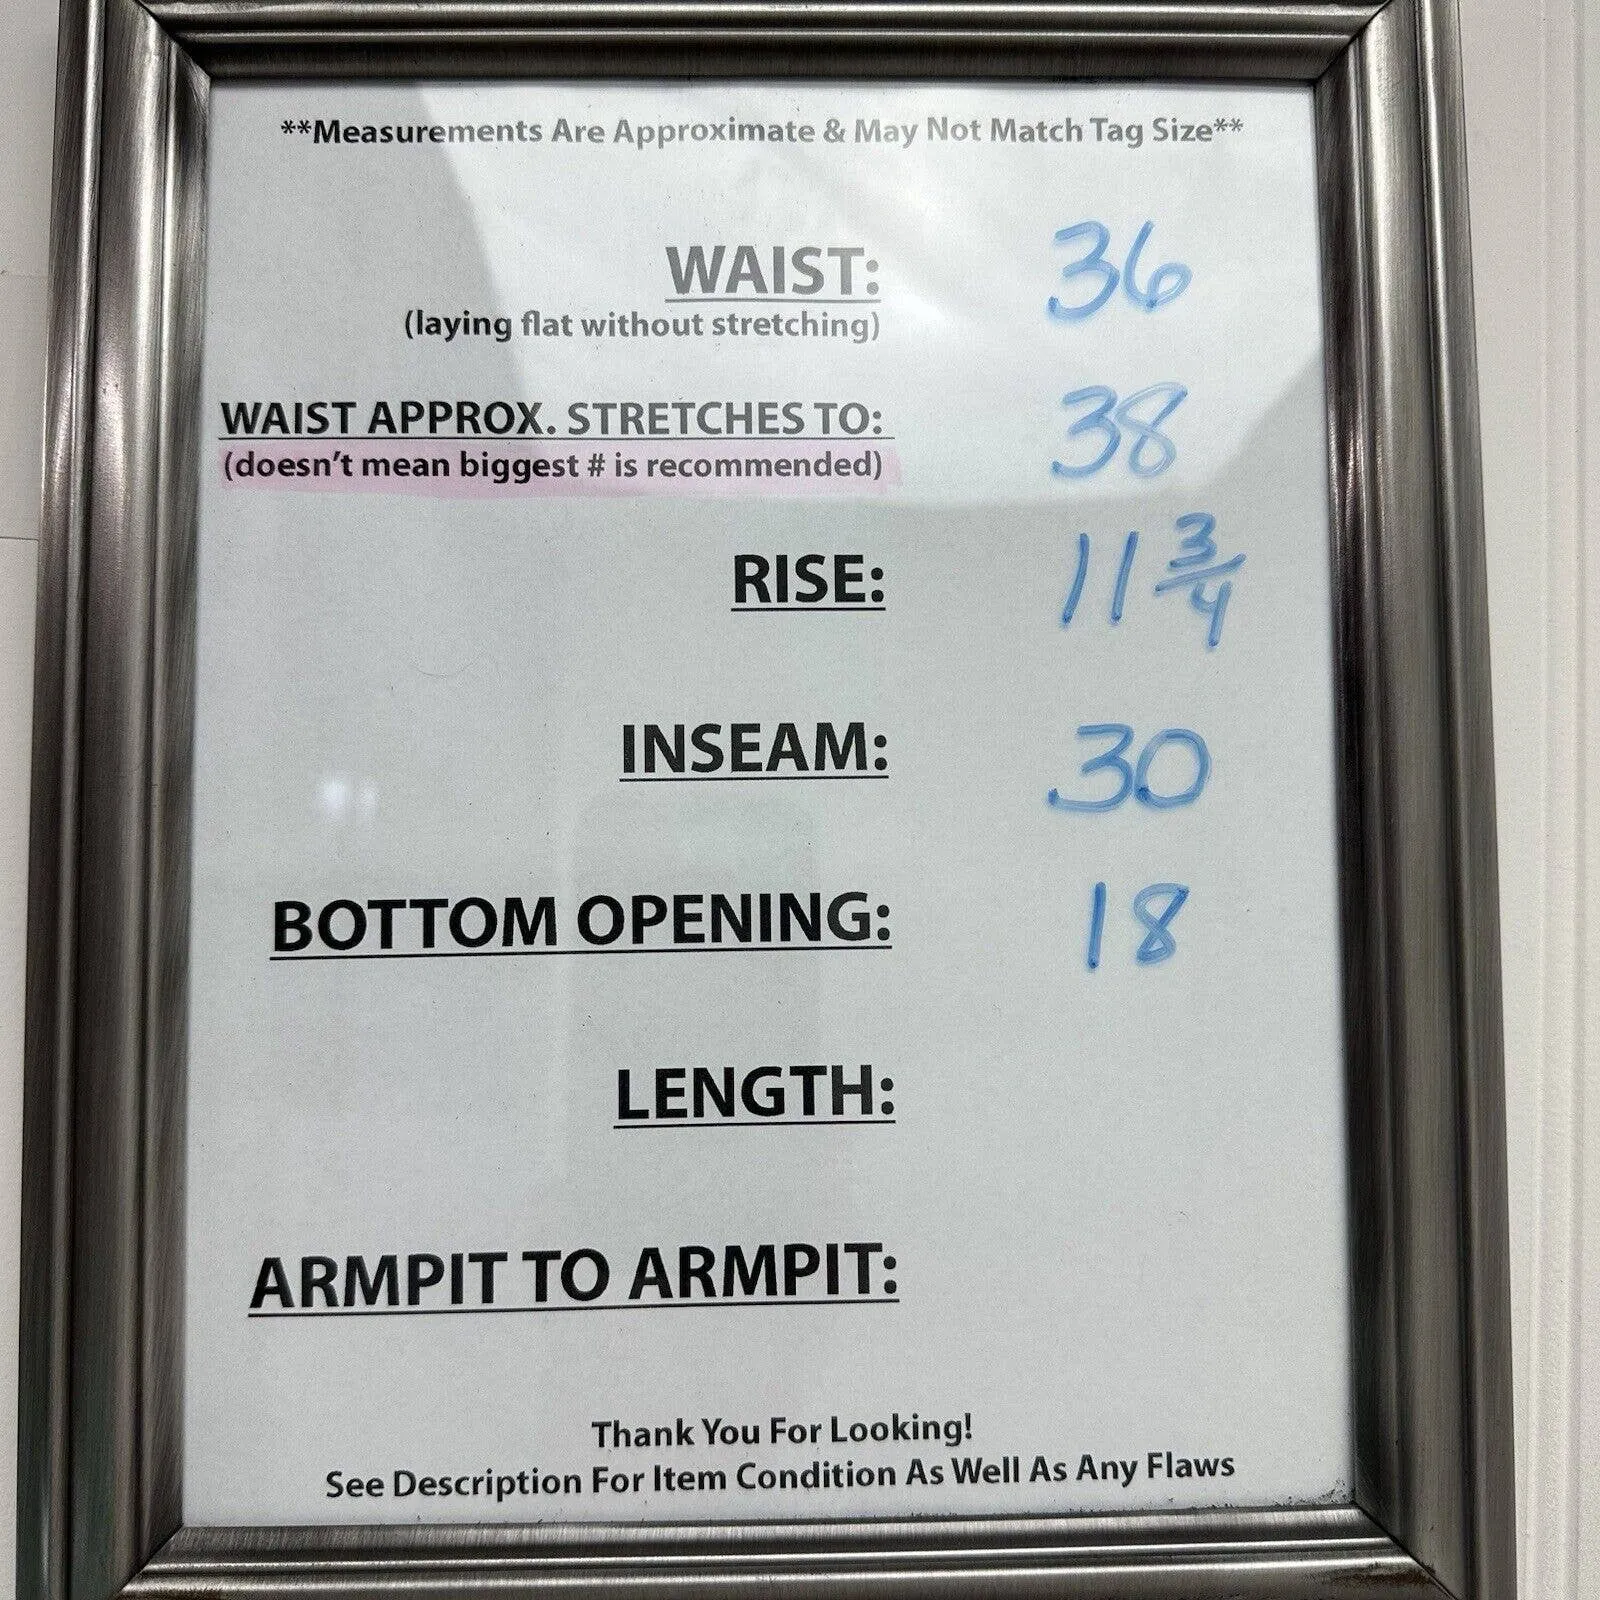 **Measurements Are Approximate & May Not Match Tag Size**
WAIST: 36
(laying flat without stretching)
WAIST APPROX. STRETCHES TO: 38
(doesn't mean biggest # is recommended)
RISE: 11 3/4
INSEAM: 30
BOTTOM OPENING: 18
LENGTH:
ARMPIT TO ARMPIT:
Thank You For Looking!
See Description For Item Condition As Well As Any Flaws